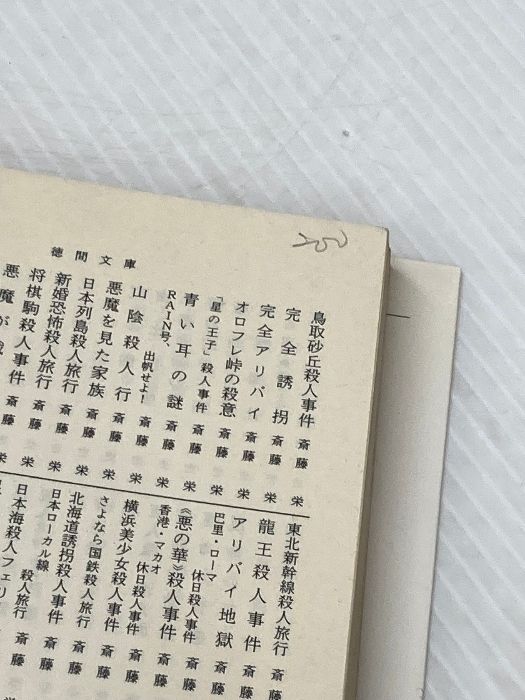 250
徳間文庫
鳥取砂丘殺人事件 斎藤 栄
完全誘拐 斎藤 栄
完全アリバイ 斎藤 栄
オロフレ峠の殺意 斎藤 栄
「星の王子」殺人事件 斎藤 栄
青い耳の謎 斎藤 栄
RAIN号、出帆せよ! 斎藤 栄
山陰殺人行 斎藤 栄
悪魔を見た家族 斎藤 栄
日本列島殺人旅行 斎藤 栄
新婚恐怖殺人旅行 斎藤 栄
将棋駒殺人事件 斎藤
悪魔が
東北新幹線殺人旅行 斎藤
龍王殺人事件 斎藤
アリバイ地獄 斎藤
巴里・ローマ休日殺人事件 斎藤
《悪の華》殺人事件 斎藤
香港・マカオ休日殺人事件 斎藤
横浜美少女殺人事件 斎藤
さよなら国鉄殺人旅行 斎藤
北海道誘拐殺人事件 斎藤
日本ローカル線殺人旅行 斎藤
日本海殺人フェリ